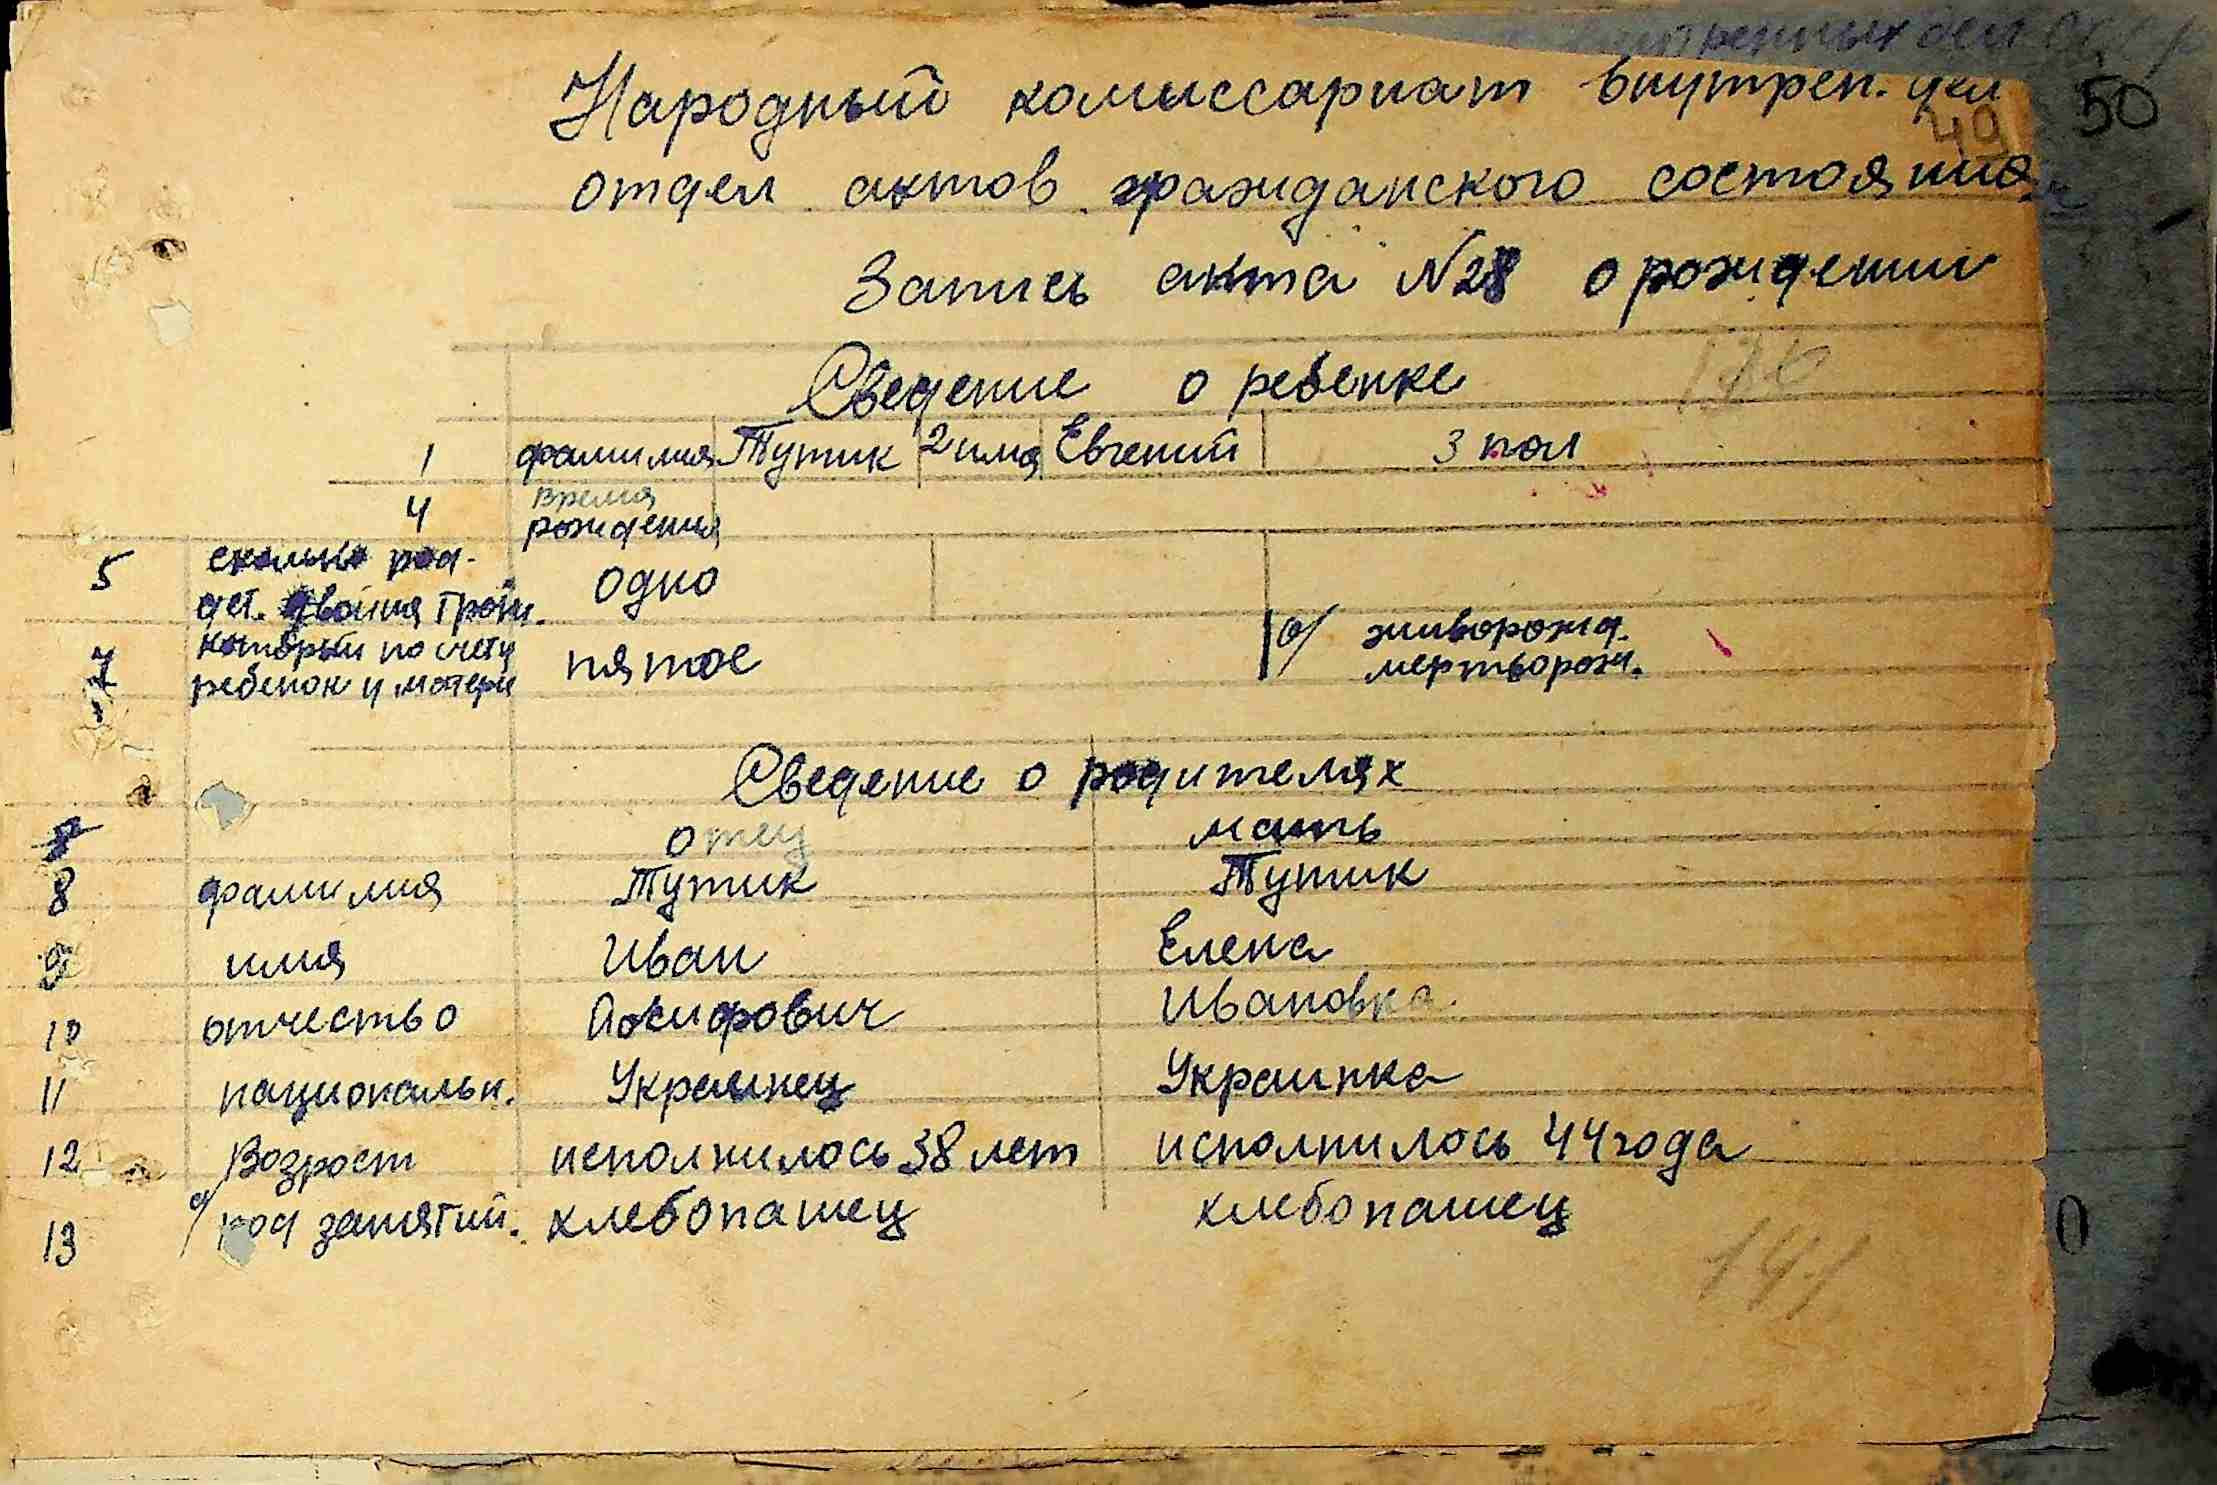 внутренных дел
Народный комиссариат внутрен. дел
50
49
отдел актов гражданского состояния
Запись акта №28 о рождении
Сведение о ребенке
1 фамилия Тутик 2 имя Евгений 3 пол
4 время рождения
5 сколько род. дет. двойня тройн. одно
7 который по счету ребенок у матери пятое
6/ живорожд. мертворож.
Сведение о родителях
отец мать
8 фамилия Тутик Тутик
9 имя Иван Елена
10 отчество Иосифович Ивановна
11 национальн. Украинец Украинка
12 Возраст исполнилось 38 лет исполнилось 44 года
13 а/ род занятий. хлебопашец хлебопашец